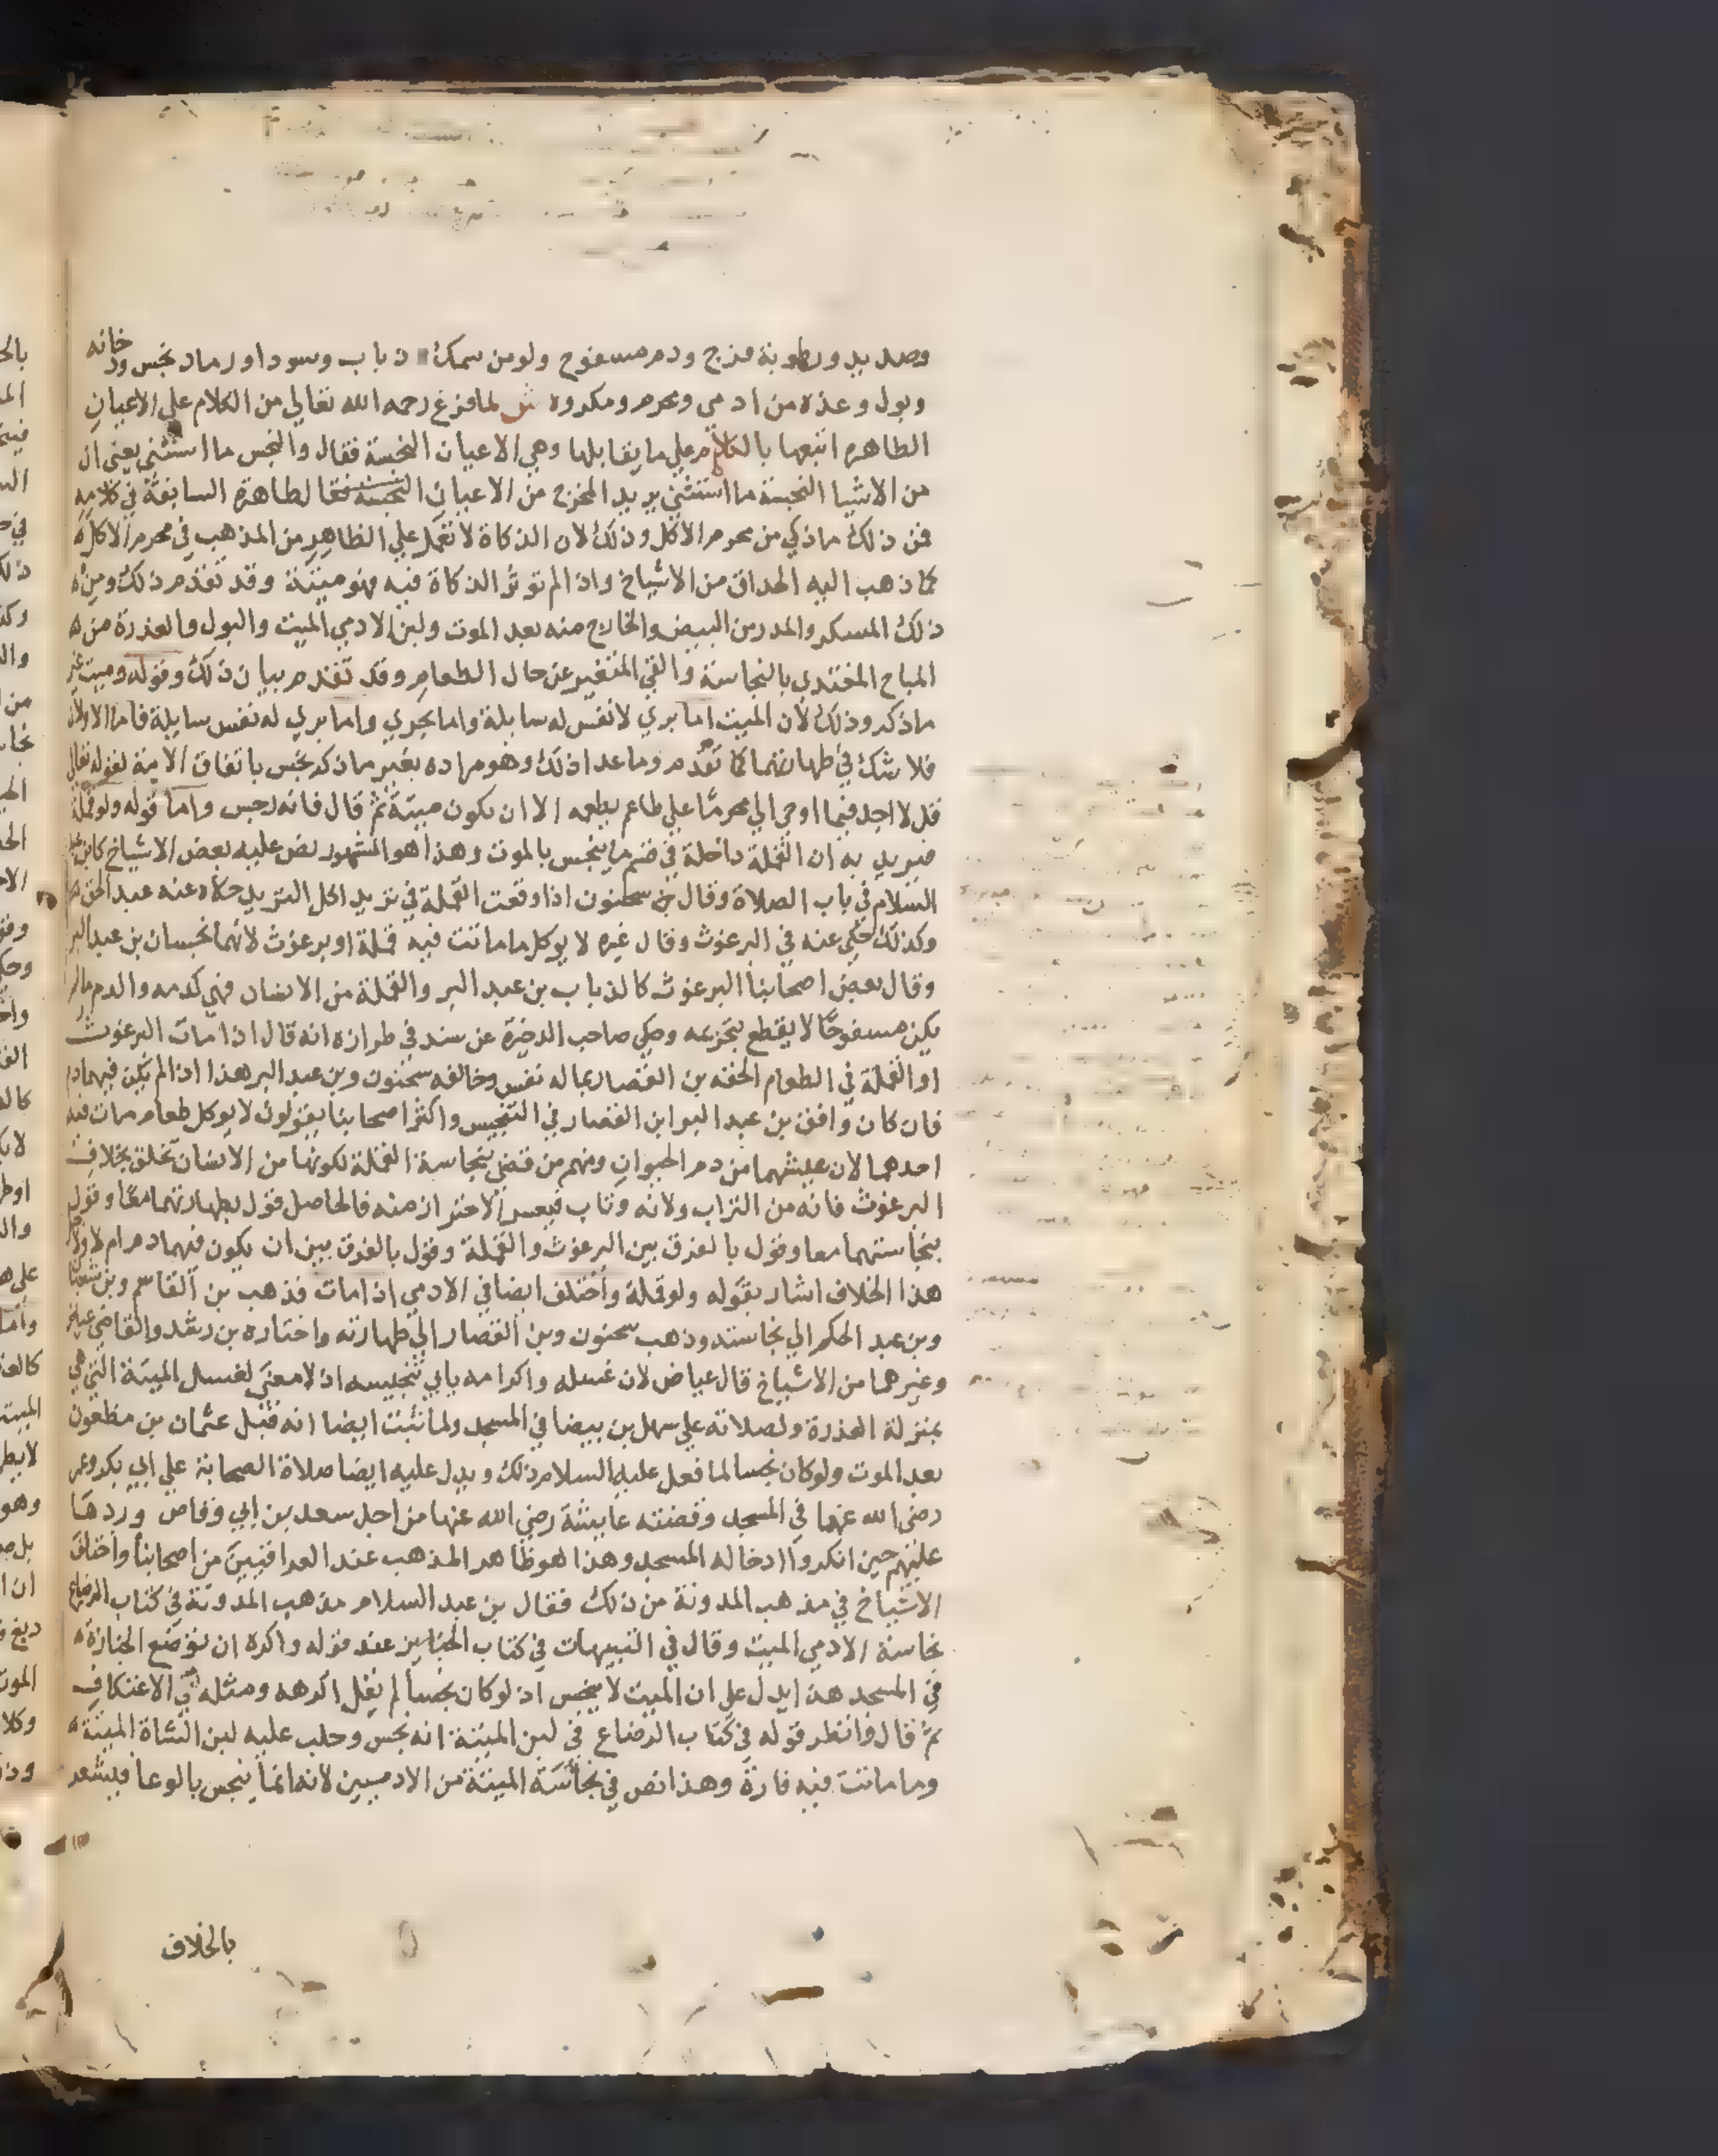 وصديد ورطوبة فرج ودم مسفوح ولو من سمك و ذباب وسودا ورماد نجس ودخانه
وبول وعذرة من ادمي ومحرم ومكروه ش لما فرغ رحمه الله تعالي من الكلام علي الاعيان
الطاهره اتبعها بالكلام علي ما يقابلها وهي الاعيان النجسة فقال والنجس ما استثني يعني ان
من الاشيا النجسة ما استثني يريد المخرج من الاعيان الطاهرة السابقة في كلامه
فمن ذلك ماذكي من محرم الاكل وذلك لان الذكاة لا تعمل علي الظاهر من المذهب في محرم الاكل
كما ذهب اليه الحداق من الاشياخ واذا لم توثر الذكاة فيه فهو ميتة وقد تقدم ذلك ومن
ذلك المسكر والمدر من البيض والخارج منه بعد الموت ولبن الادمي الميت والبول والعذرة من
المباح المغتدي بالنجاسة والقي المتغير عن حال الطعام وقد تقدم بيان ذلك وقوله وميت غير
ماذكر وذلك لان الميت اما بري لانفس له سايلة واما بحري واما بري له نفس سايلة فاما الاولان
فلا شك في طهارتهما كما تقدم وماعدا ذلك وهو مراده بغير ماذكر نجس باتفاق الامة لقوله تعالي
قل لا اجد فيما اوحي الي محرما علي طاعم يطعمه الا ان يكون ميتة ثم قال فانه رجس واما قوله ولو قملة
فيريد به ان القملة داخلة في قسم ما ينجس بالموت وهذا هو المشهور نص عليه بعض الاشياخ كابن عبد
السلام في باب الصلاة وقال بن سحنون اذا وقعت القملة في ثريد اكل الثريد حكاه عنه عبد الحق
وكذلك حكي عنه في البرغوث وقال غيره لا يوكل ما ماتت فيه قملة او برغوث لانهما نجسان بن عبد البر
وقال بعض اصحابنا البرغوث كالذباب بن عبد البر والقملة من الانسان فهي كدمه والدم مالم
يكن مسفوحا لا يقطع بتحريمه وحكي صاحب الدخيرة عن سند في طرازه انه قال اذا مات البرغوث
او القملة في الطعام الحقه بن القصار بماله نفس وخالفه سحنون وبن عبد البر هذا اذا لم يكن فيهما دم
فان كان وافق بن عبد البر ابن القصار في التنجيس واكثر اصحابنا يقولون لا يوكل طعام مات فيه
احدهما لان عيشهما من دم الحيوان ومنهم من قضي بنجاسة القملة لكونها من الانسان تخلق بخلاف
البرغوث فانه من التراب ولانه وثاب فيعسر الاحتراز منه فالحاصل قول بطهارتهما معا وقول
بنجاستهما معا وقول بالفرق بين البرغوث والقملة وقول بالفرق بين ان يكون فيهما دم ام لا
هذا الخلاف اشار بقوله ولو قملة واختلف ايضا في الادمي اذا مات فذهب بن القاسم وبن شعبان
وبن عبد الحكم الي نجاسته وذهب سحنون وبن القصار الي طهارته واختاره بن رشد والقاضي عياض
وغيرهما من الاشياخ قال عياض لان غسله واكرامه يابي تنجيسه اذ لا معني لغسل الميتة التي هي
بمنزلة العذرة ولصلاته علي سهل بن بيضا في المسجد ولما ثبت ايضا انه قبل عثمان بن مظعون
بعد الموت ولو كان نجسا لما فعل عليه السلام ذلك ويدل عليه ايضا صلاة الصحابة علي ابي بكر وعمر
رضي الله عنهما في المسجد وقضته عايشة رضي الله عنها من اجل سعد بن ابي وقاص وردها
عليهم حين انكروا ادخاله المسجد وهذا هو ظاهر المذهب عند العراقيين من اصحابنا واختلف
الاشياخ في مذهب المدونة من ذلك فقال بن عبد السلام مذهب المدونة في كتاب الرضاع
نجاسة الادمي الميت وقال في التنبيهات في كتاب الجنايز عند قوله واكره ان توضع الجنازة
في المسجد هذا يدل علي ان الميت لا ينجس اذ لو كان نجسا لم يقل اكرهه ومثله في الاعتكاف
ثم قال وانظر قوله في كتاب الرضاع في لبن الميتة انه نجس وحلب عليه لبن الشاة الميتة
وما ماتت فيه فارة وهذا نص في نجاسة الميتة من الادميين لانه انما ينجس بالوعا فيشعر
بالخلاف